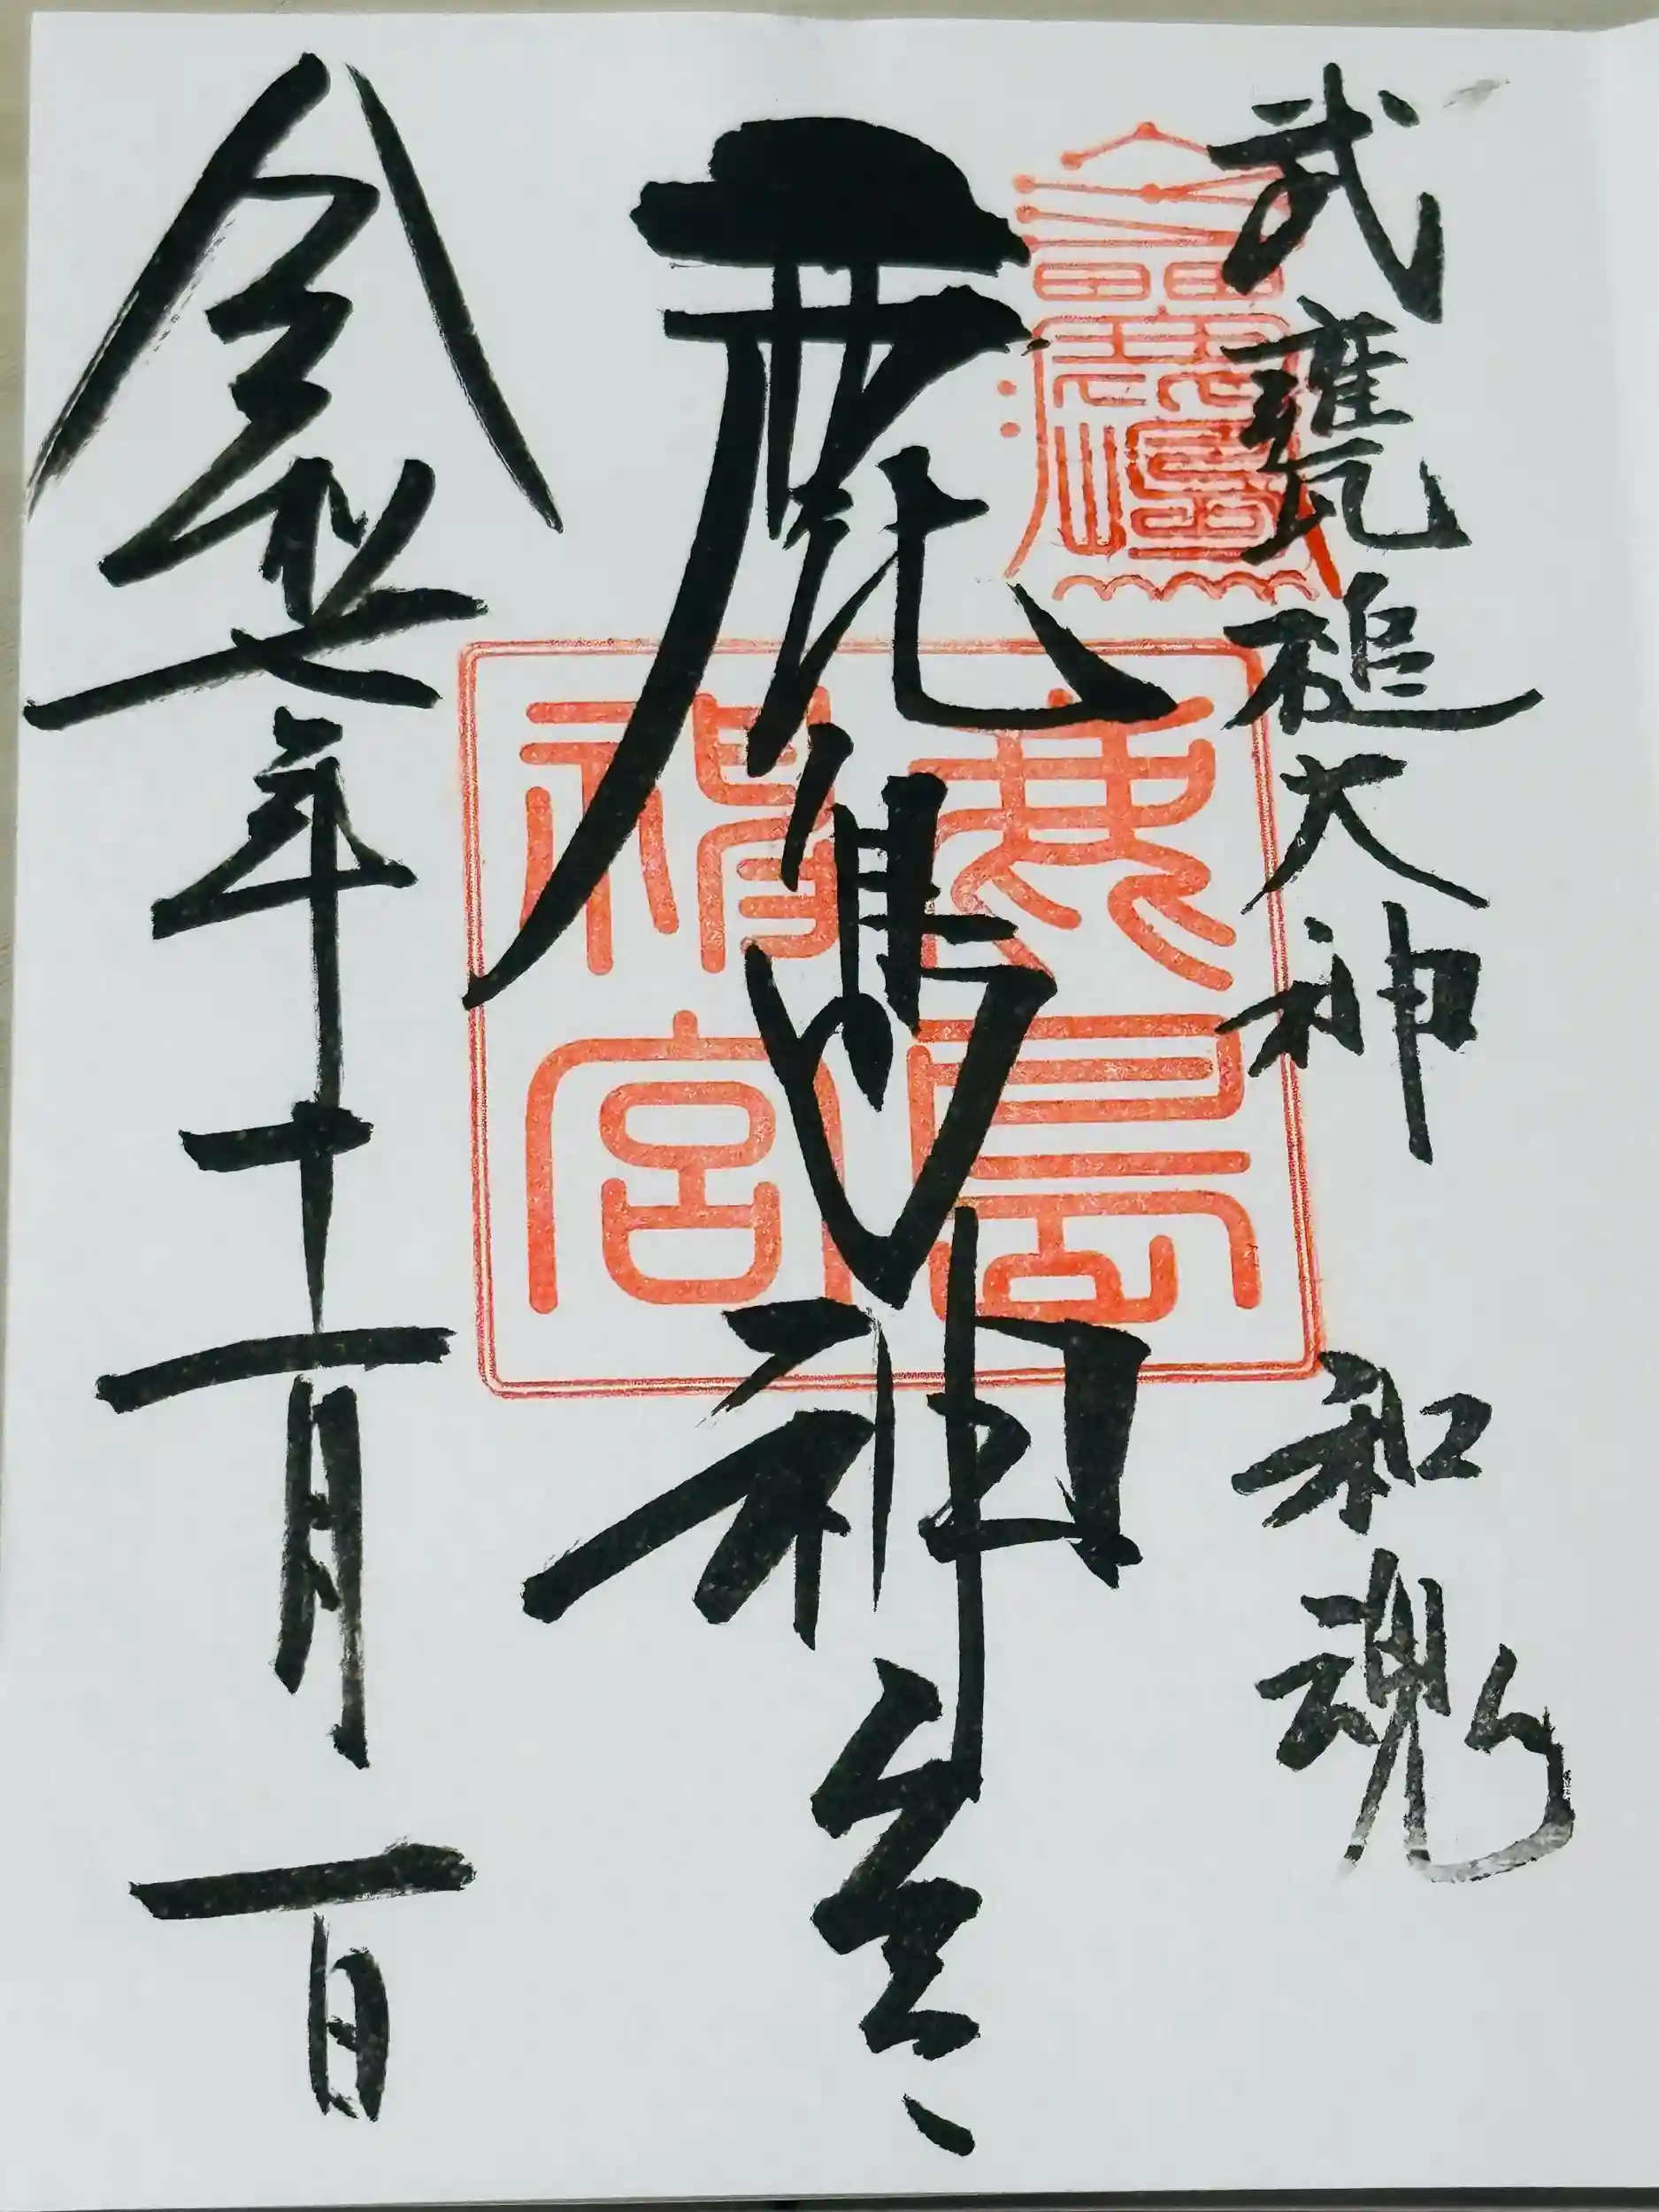 武甕槌大神 和魂
鹿島神宮
令和七年十一月一日
鹿島
神宮